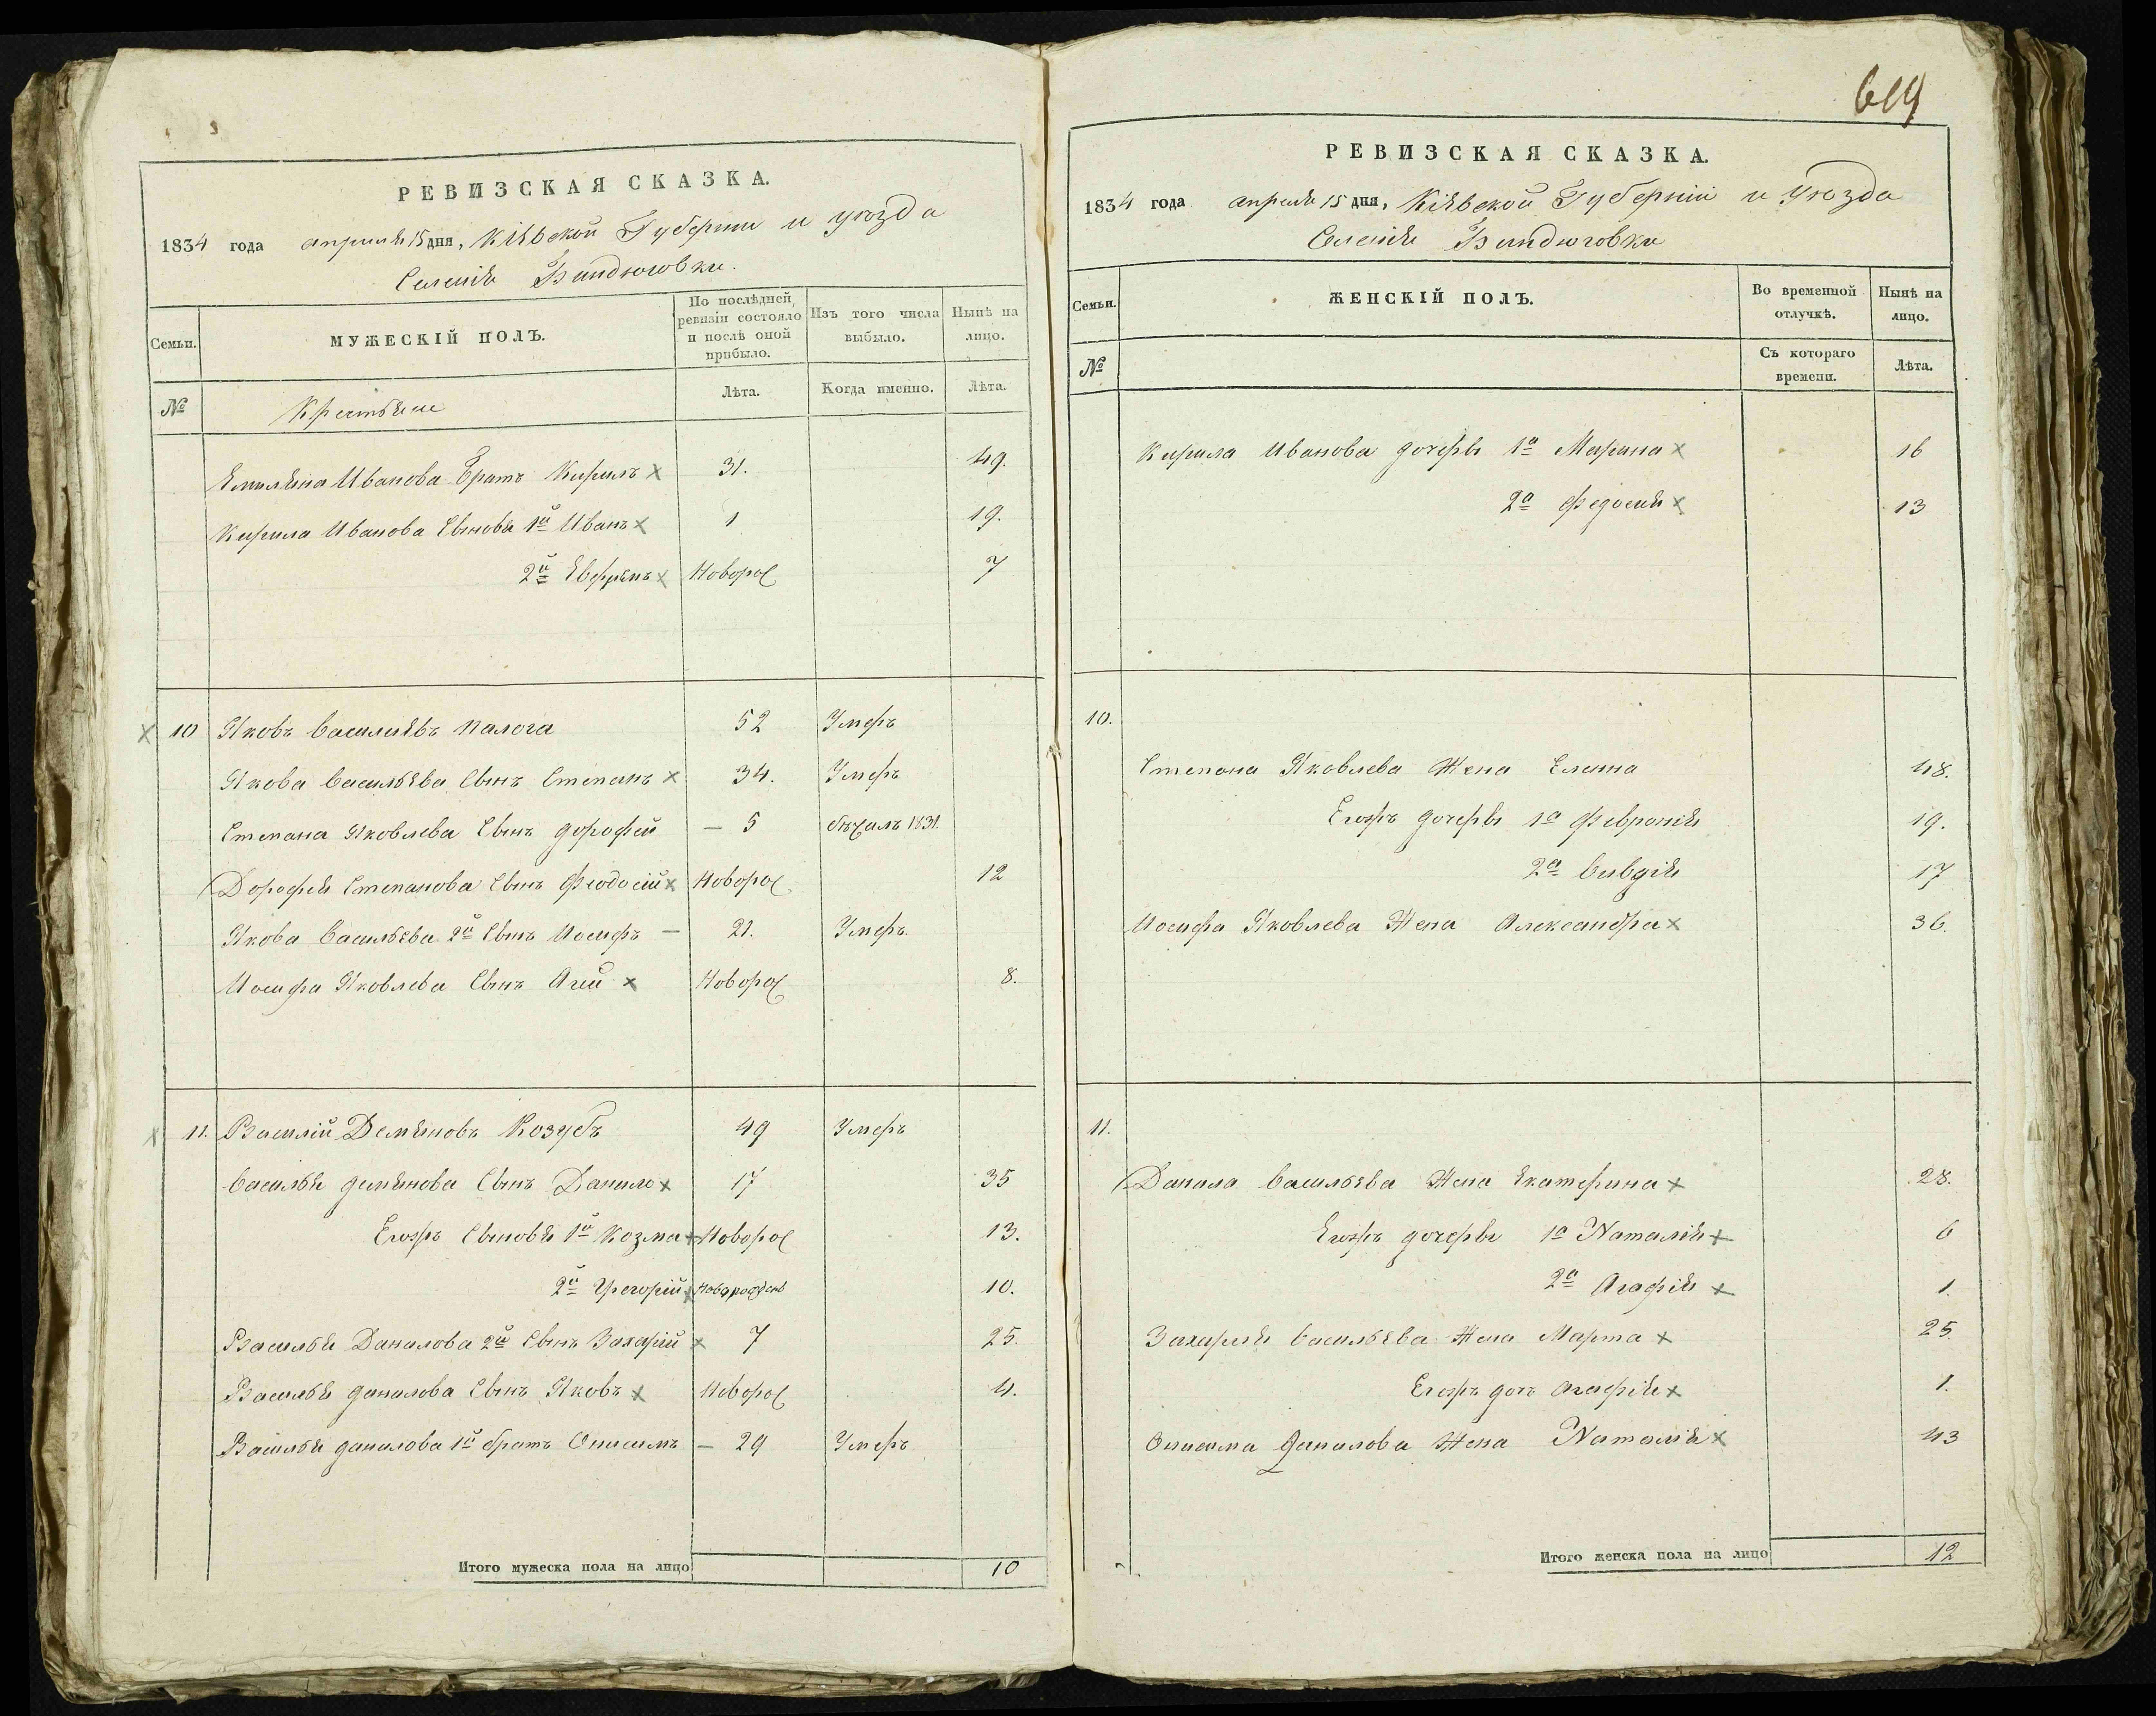 РЕВИЗСКАЯ СКАЗКА.
1834 года апреля 15 дня, Кіевской Губерніи и уѣзда
Селенія Виндюговки.
Семьи. МУЖЕСКІЙ ПОЛЪ. По послѣдней ревизіи состояло и послѣ оной прибыло. Изъ того числа выбыло. Нынѣ на лицо.
№ Крестьяне Лѣта. Когда именно. Лѣта.
Емиляна Иванова братъ Кирилъ 31. 49.
Кирила Иванова Сыновья 1й Иванъ 1 19.
2й Новорож 7
10 Яковъ Васильевъ Палога 52 Умеръ
Якова Васильева Сынъ Степанъ 34. Умеръ
Степана Яковлева Сынъ Дорофей 5 бѣжалъ 1831.
Дорофея Степанова Сынъ Феодосій Новорож. 12
Якова Васильева 2й Сынъ Иосифъ 21. Умеръ.
Иосифа Яковлева Сынъ Агей Новорож 8.
11. Василій Демяновъ Козубъ 49 Умеръ
Василья Демянова Сынъ Данило 17 35
Егоже Сыновья 1й Козма Новорож 13.
2й Григорій Новорожденъ 10.
Василья Данилова 2й Сынъ Захарій 7 25.
Василья Данилова Сынъ Яковъ Новорож 4.
Василья Данилова 1й братъ Онисимъ 29 Умеръ
Итого мужеска пола на лицо 10
619
РЕВИЗСКАЯ СКАЗКА.
1834 года апреля 15 дня, Кіевской Губерніи и Уѣзда
Селенія Виндюговки
Семьи. ЖЕНСКІЙ ПОЛЪ. Во временной отлучкѣ. Нынѣ на лицо.
№ Съ котораго времени. Лѣта.
Кирила Иванова дочеры 1а Марина 16
2а Федосия 13
10.
Степана Яковлева Жена Елена 48.
Егожъ дочеры 1а Февронія 19.
2а Евдія 17
Иосифа Яковлева Жена Александра 36.
11.
Данила Васильева Жена Екатерина 28.
Егожъ дочеры 1а Наталія 6
2а Агафія 1.
Захарія Васильева Жена Марта 25
Егожъ доч Агафія 1.
Онисима Данилова Жена Наталія 43
Итого женска пола на лицо 12